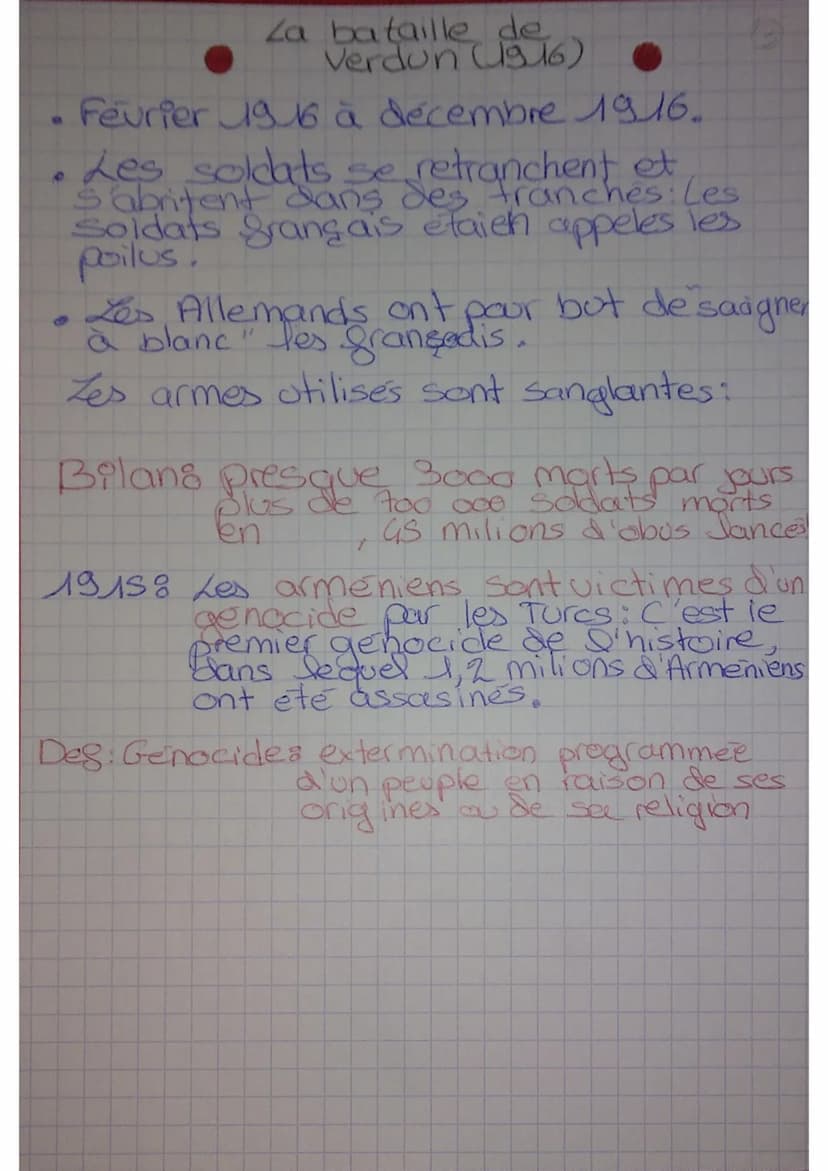 La bataille de
Verdun (1916)
• Février 1916 à décembre 1916.
• Les soldats se retranchent et
s'abritent dans des tranchés: Les
soldats français étaien appelés les
poilus.
• Les Allemands ont pour but de "saigner
à blanc" les français.
Les armes utilisés sont sanglantes:
Bilan: presque 3000 morts par jours
plus de 700 000 soldats morts
en , 45 milions d'obus lancés
1915: Les arméniens sont victimes d'un
génocide par les Turcs: C'est le
premier génocide de l'histoire,
dans lequel 1,2 milions d'Arméniens
ont été assasinés.
Def: Génocide: extermination programmée
d'un peuple en raison de ses
origines ou de sa religion